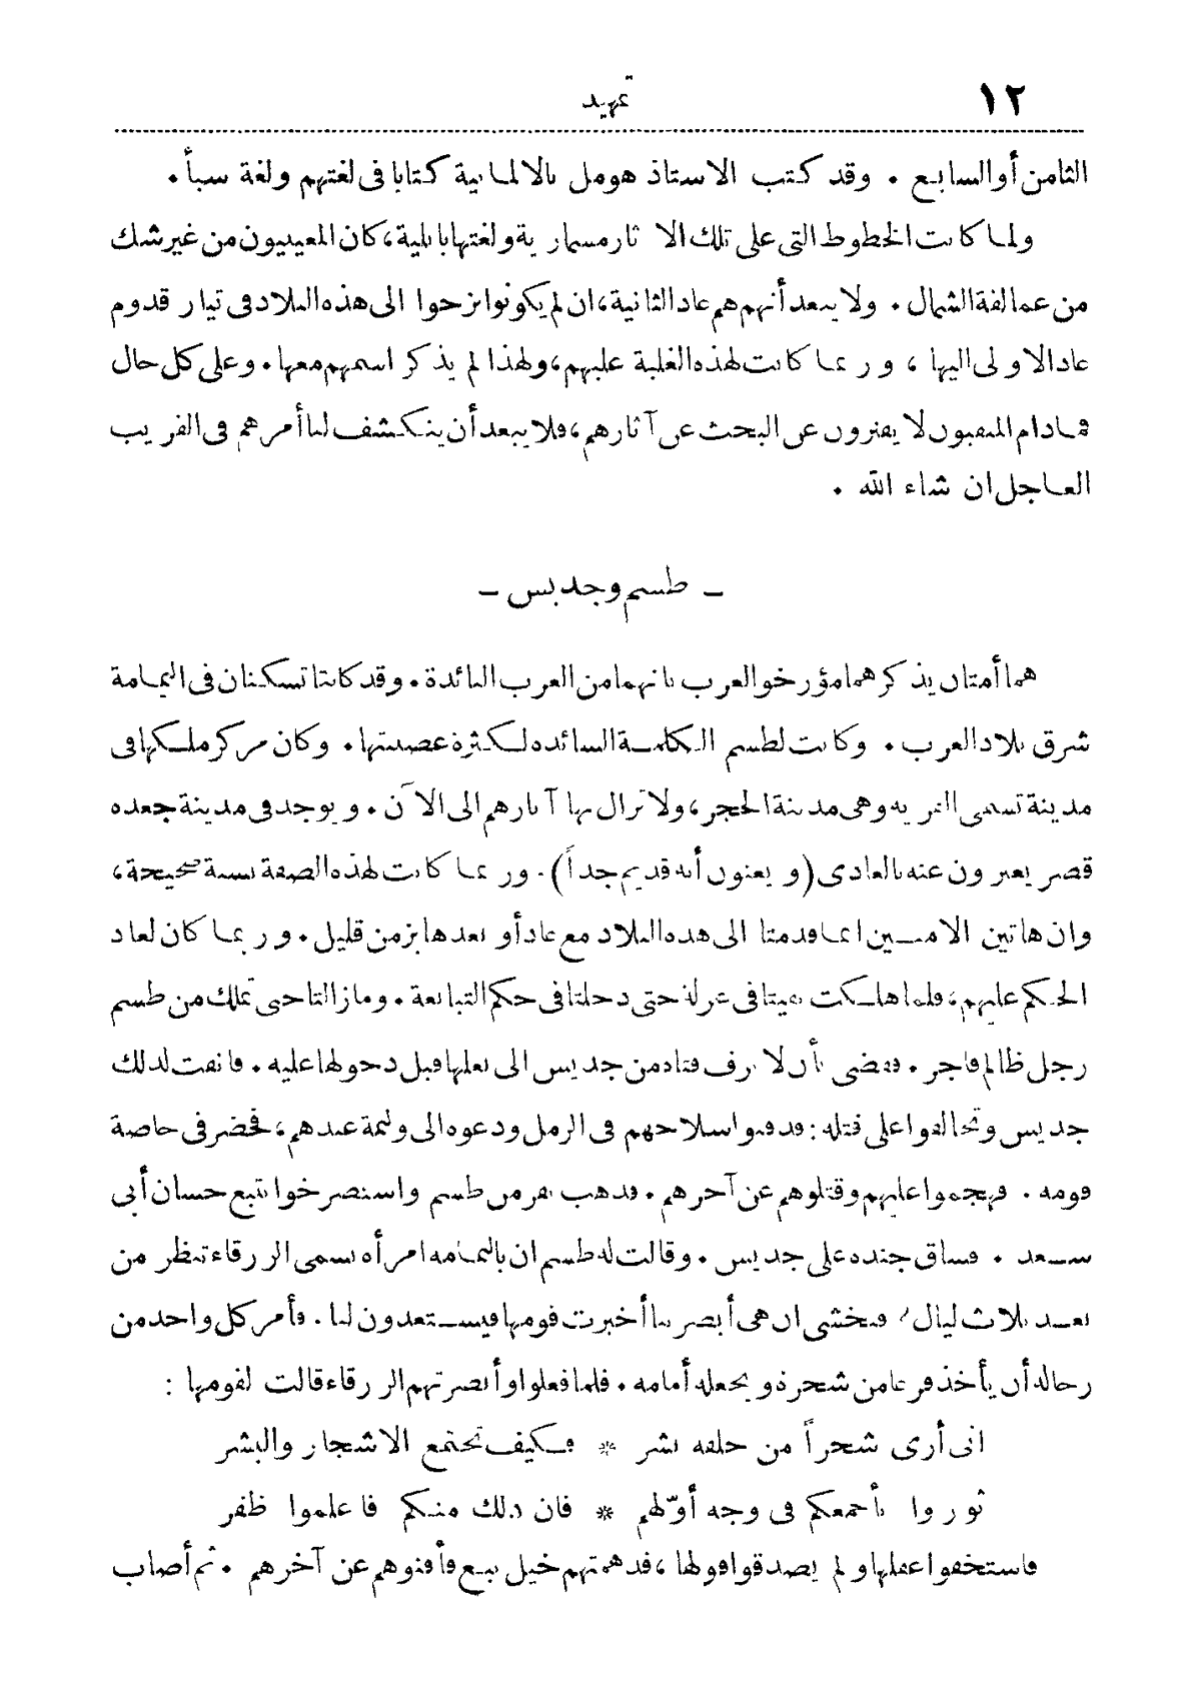 ١٢
تمهيد
الثامن أو السابع . وقد كتب الاستاذ هومل بالالمانية كتابا فى لغتهم ولغة سبأ .
ولما كانت الخطوط التى على تلك الا ثار مسمارية ولغتها بابلية ، كان المعينيون من غير شك
من عمالقة الشمال . ولا يبعد أنهم هم عاد الثانية ، ان لم يكونوا نزحوا الى هذه البلاد فى تيار قدوم
عاد الاولى اليها ، وربما كانت لهذه الغلبة عليهم ، ولهذا لم يذكر اسمهم معها . وعلى كل حال
فمادام المنقبون لا يفترون عن البحث عن آثارهم ، فلا يبعد أن ينكشف لنا أمرهم فى القريب
العاجل ان شاء الله .
ــ طسم وجديس ــ
هما أمتان يذكرهما مؤرخو العرب بانهما من العرب البائدة . وقد كانتا تسكنان فى اليمامة
شرق بلاد العرب . وكانت لطسم الكلمة السائده لكثرة عصبيتها . وكان مركز ملكها فى
مدينة تسمى القريه وهى مدينة الحجر ، ولا تزال بها آثارهم الى الآن . ويوجد فى مدينة جعده
قصر يعبرون عنه بالعادى (ويعنون أنه قديم جداً) . وربما كانت لهذه الصفة نسبة صحيحة ،
وان هاتين الامتين انما قدمتا الى هذه البلاد مع عاد أو بعدها بزمن قليل . وربما كان لعاد
الحكم عليهم ، فلما هلكت بقيتا فى عزلة حتى دخلتا فى حكم التبابعة . وما زالتا حتى تملك من طسم
رجل ظالم فاجر . فقضى بأن لا تزف فتاه من جديس الى بعلها قبل دخولها عليه . فانفت لذلك
جديس وتحالفوا على قتله : فدفنوا سلاحهم فى الرمل ودعوه الى وليمة عندهم ، فحضر فى خاصة
قومه . فهجموا عليهم وقتلوهم عن آخرهم . فذهب نفر من طسم واستصرخوا بتبع حسان أبى
سعد . فساق جنده على جديس . وقالت له طسم ان باليمامه امرأه تسمى الزرقاء تنظر من
بعد ثلاث ليال ، فنخشى ان هى أبصرتنا أخبرت قومها فيستعدون لنا . فأمر كل واحد من
رجاله أن يأخذ فرعا من شجرة ويجعله أمامه . فلما فعلوا وأبصرتهم الزرقاء قالت لقومها :
انى أرى شجراً من خلفه بشر * فكيف تجتمع الاشجار والبشر
ثوروا بأجمعكم فى وجه أوّلهم * فان ذلك منكم فاعلموا ظفر
فاستخفوا عقلها ولم يصدقوا قولها ، فدهمتهم خيل تبع فأفنوهم عن آخرهم . ثم أصاب